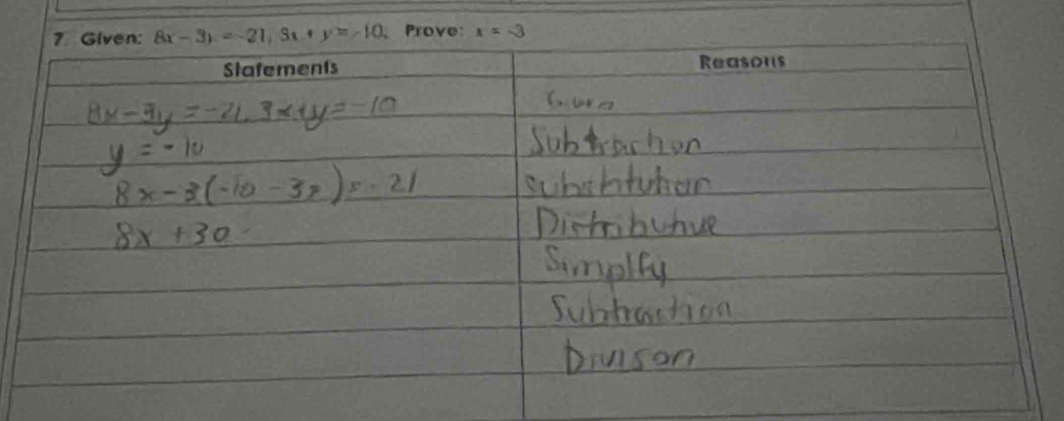 7. Given: 8x - 3y = -21, 3x + y = -10, Prove: x = -3
Statements Reasons
8x-3y=-21, 3x+y=-10 Given
y = -10 Subtraction
8x-3(-10-3x)=-21 Substitution
8x+30 Distributive
Simplfy
Subtraction
Divison